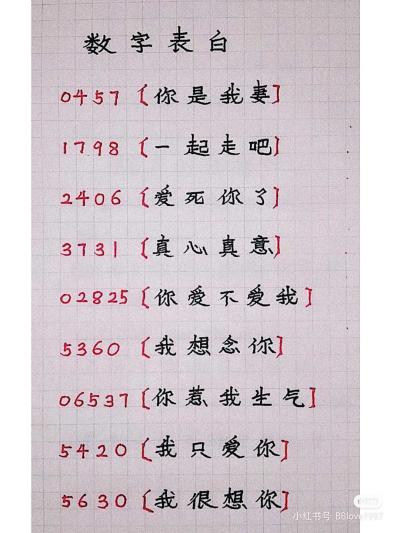 数字表白
0457【你是我妻】
1798【一起走吧】
2406【爱死你了】
3731【真心真意】
02825【你爱不爱我】
5360【我想念你】
06537【你惹我生气】
5420【我只爱你】
5630【我很想你】
小红书号